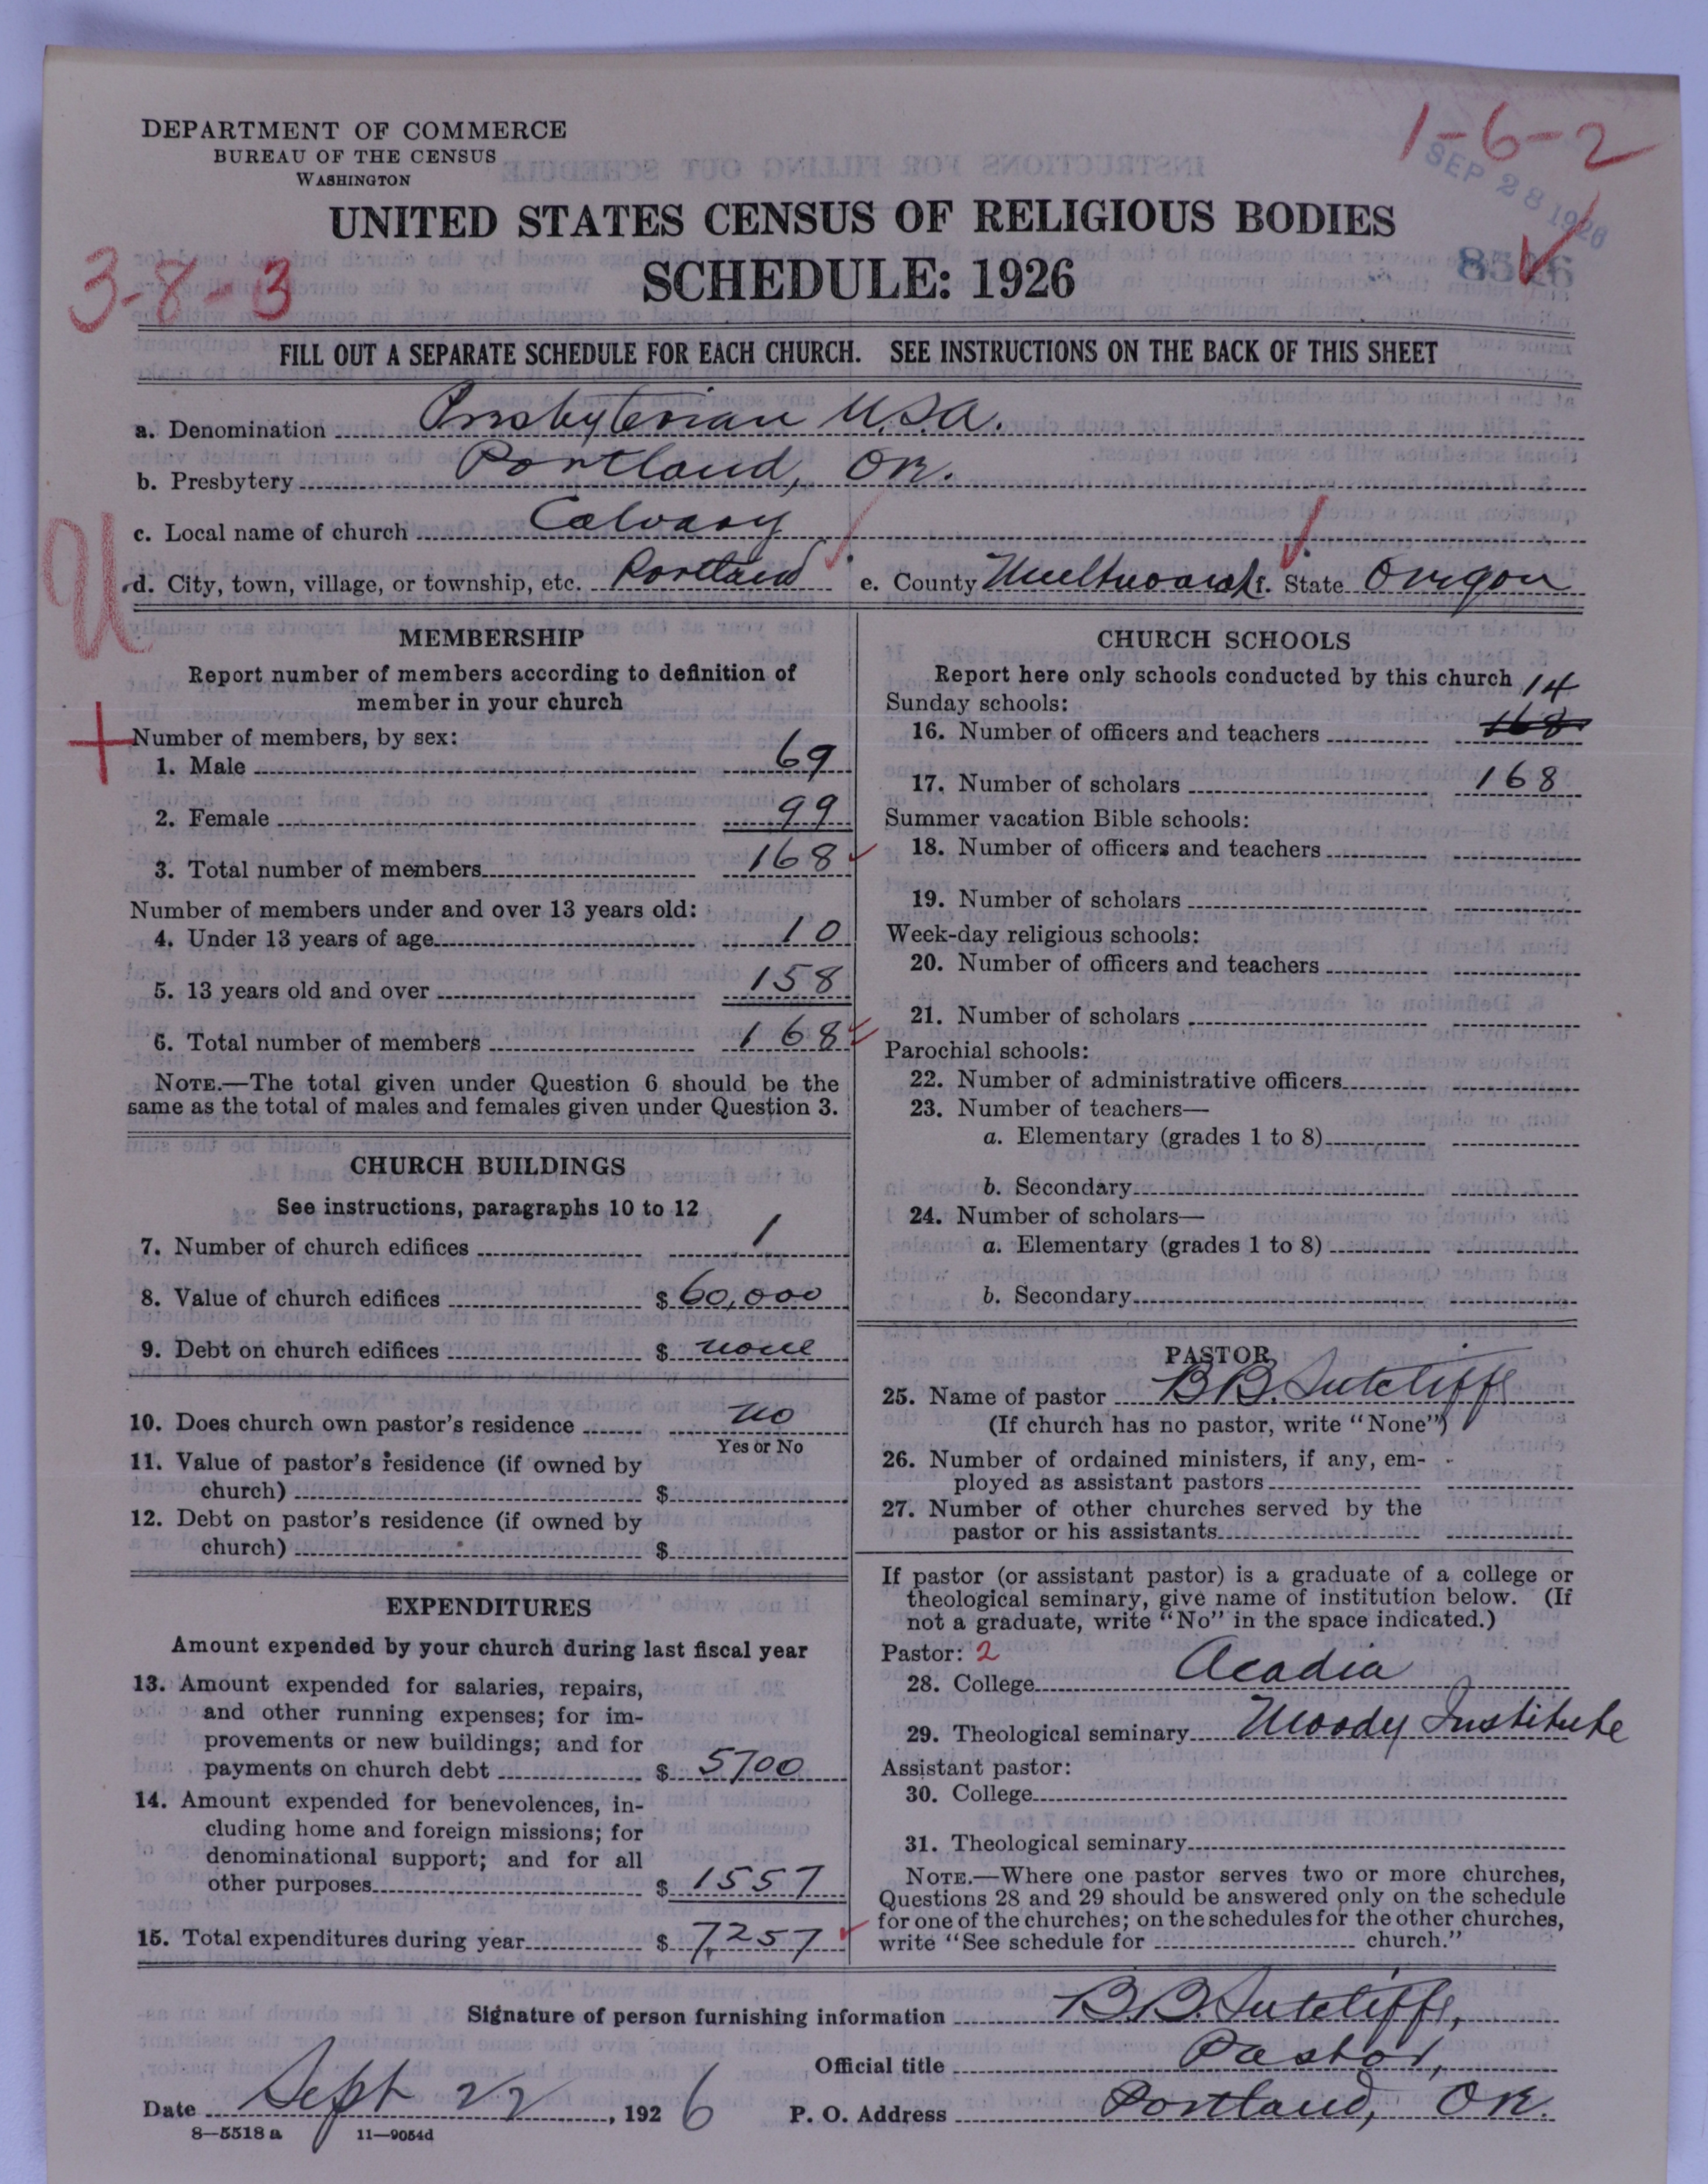 DEPARTMENT OF COMMERCE
BUREAU OF THE CENSUS
WASHINGTON
1-6-2
SEP 28 1926
UNITED STATES CENSUS OF RELIGIOUS BODIES
SCHEDULE: 1926
3-8-3
8526
FILL OUT A SEPARATE SCHEDULE FOR EACH CHURCH. SEE INSTRUCTIONS ON THE BACK OF THIS SHEET
a. Denomination Presbyterian U.S.A.
b. Presbytery Portland, Or.
c. Local name of church Calvary
d. City, town, village, or township, etc. Portland e. County Multnomah f. State Oregon
U
MEMBERSHIP
Report number of members according to definition of
member in your church
Number of members, by sex:
1. Male 69
2. Female 99
3. Total number of members 168
Number of members under and over 13 years old:
4. Under 13 years of age 10
5. 13 years old and over 158
6. Total number of members 168
NOTE.—The total given under Question 6 should be the
same as the total of males and females given under Question 3.
CHURCH BUILDINGS
See instructions, paragraphs 10 to 12
7. Number of church edifices 1
8. Value of church edifices $ 60,000
9. Debt on church edifices $ none
10. Does church own pastor's residence no
Yes or No
11. Value of pastor's residence (if owned by
church) $
12. Debt on pastor's residence (if owned by
church) $
EXPENDITURES
Amount expended by your church during last fiscal year
13. Amount expended for salaries, repairs,
and other running expenses; for im-
provements or new buildings; and for
payments on church debt $ 5700
14. Amount expended for benevolences, in-
cluding home and foreign missions; for
denominational support; and for all
other purposes $ 1557
15. Total expenditures during year $ 7,257
CHURCH SCHOOLS
Report here only schools conducted by this church
Sunday schools: 14
16. Number of officers and teachers 168
17. Number of scholars 168
Summer vacation Bible schools:
18. Number of officers and teachers
19. Number of scholars
Week-day religious schools:
20. Number of officers and teachers
21. Number of scholars
Parochial schools:
22. Number of administrative officers
23. Number of teachers—
a. Elementary (grades 1 to 8)
b. Secondary
24. Number of scholars—
a. Elementary (grades 1 to 8)
b. Secondary
PASTOR
25. Name of pastor B.B. Sutcliffe
(If church has no pastor, write "None")
26. Number of ordained ministers, if any, em-
ployed as assistant pastors
27. Number of other churches served by the
pastor or his assistants
If pastor (or assistant pastor) is a graduate of a college or
theological seminary, give name of institution below. (If
not a graduate, write "No" in the space indicated.)
Pastor: 2
28. College Acadia
29. Theological seminary Moody Institute
Assistant pastor:
30. College
31. Theological seminary
NOTE.—Where one pastor serves two or more churches,
Questions 28 and 29 should be answered only on the schedule
for one of the churches; on the schedules for the other churches,
write "See schedule for church."
Signature of person furnishing information B.B. Sutcliffe,
Official title Pastor,
Date Sept 22, 1926 P. O. Address Portland, Or.
8—5518 a 11—9054d